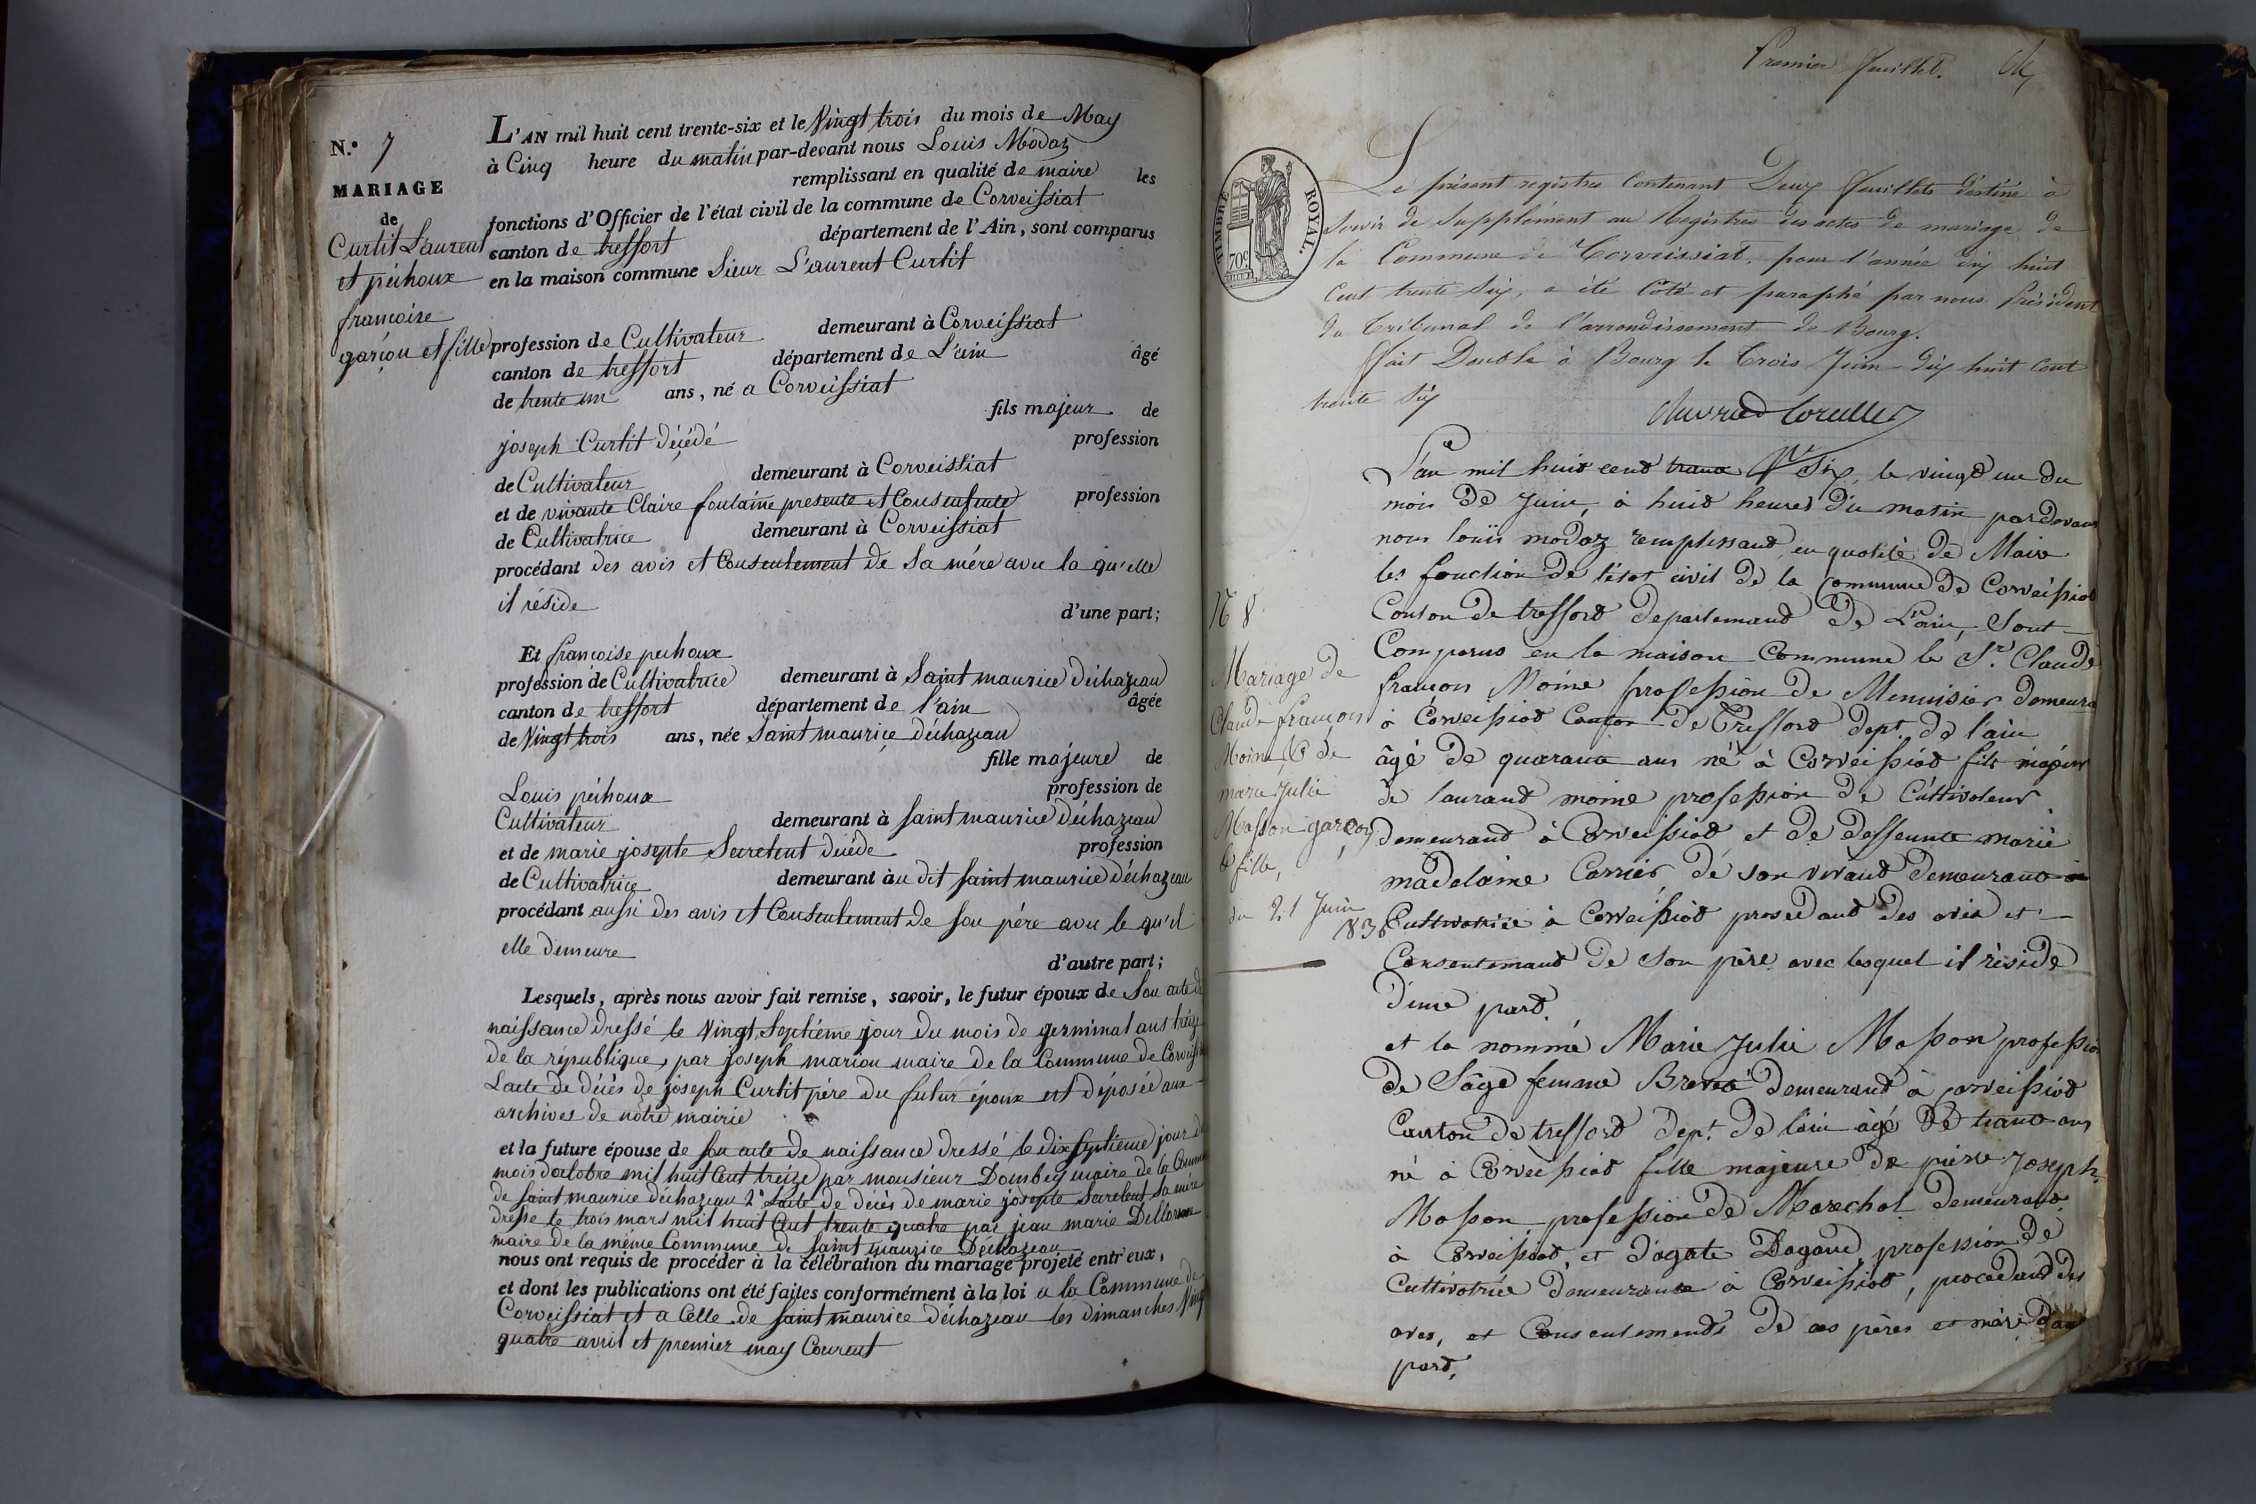 N.° 7
MARIAGE
de
Curtit Laurent
et péchoux
francoise
garçon et fille
L'AN mil huit cent trente-six et le Vingt trois du mois de May
à Cinq heure du matin par-devant nous Louis Modaz
remplissant en qualité de maire les
fonctions d'Officier de l'état civil de la commune de Corveissiat
canton de treffort département de l'Ain, sont comparus
en la maison commune Sieur Laurent Curtit
profession de Cultivateur demeurant à Corveissiat
canton de treffort département de L'ain âgé
de trente un ans, né a Corveissiat
fils majeur de
joseph Curtit décédé profession
de Cultivateur demeurant à Corveissiat
et de vivante Claire fontaine presente et Consentente profession
de Cultivatrice demeurant à Corveissiat
procédant des avis et Consentement de Sa mére avec la qu'elle
il réside d'une part;
Et françoise pechoux
profession de Cultivatrice demeurant à Saint maurice d'échazeau
canton de treffort département de l'ain âgée
de Vingt trois ans, née Saint maurice d'échazeau
fille majeure de
Louis péchoux profession de
Cultivateur demeurant à saint maurice d'échazeau
et de marie josepte Secretent décéde profession
de Cultivatrice demeurant àu dit saint maurice d'échazeau
procédant aussi des avis et Consentement de son pére avec le qu'el
elle demeure d'autre part;
Lesquels, après nous avoir fait remise, savoir, le futur époux de Son acte de
naissance dressé le Vingt Septiéme jour du mois de germinal ans treize
de la république, par joseph marion maire de la Commune de
L'acte de décés de joseph Curtit pére du futur époux est déposée aux
archives de notre mairie
et la future épouse de son acte de naissance dressé le dix Septieme jour
mois d'octobre mil huit Cent treize par monsieur Dombey maire de la
de saint maurice d'échazeau 2° L'acte de décés de marie josepte Secretent Sa mere
dresse le trois mars mil huit Cent trente quatre par jean marie
maire de la même Commune de Saint maurice D'échazeau
nous ont requis de procéder à la célébration du mariage projeté entr'eux,
et dont les publications ont été faites conformément à la loi a la Commune de
Corveissiat et a Celle de saint maurice d'échazeau les dimanches Vingt
quatre avril et premier may Courent
Premier feuillet.
TIMBRE ROYAL.
70c
Le présent registre contenant Deux feuillets destiné à
servir de Supplément au Registre des actes de mariage de
la Commune de Corveissiat. pour l'année dix huit
cent trente Six, a été Coté et paraphé par nous Président
du Tribunal de l'arrondissement de Bourg.
fait Double à Bourg le trois Juin dix huit cent
trente Six
L'an mil huit cend trente Six, le vingt un du
mois de Juin, à huit heures du matin pardevant
nous louis modaz remplissant en qualité de Maire
les fonction de l'état civil de la Commune de Corveissiat
Conton de trefford departemand de L'ain, Sont
Comparus en la maison Commune le Sr. Claude
françois Moine profession de Menuisier demeura
à Corveissiat Canton de Trefford dept. de l'ain
âgé de quarante ans né à Corveissiod fils majeur
de laurand moine profession de Cultivateur
demeurand à Corveissiod et de deffeunte marie
madelaine Carrier de son vivant demeurante
Cultivatrice à Corveissiod prosedand des avis et
Consentemand de Son père avec lesquel il réside
d'une pard.
et la nommé Marie Julie Masson profession
de Sâge femme Breveté demeurand à Corveissiod
Canton de trefford dept. de l'ain âgé de trante ans
né à Corveissiod fille majeure de pierre Joseph
Masson profession de Marechal demeurand
à Corveissiod, et d'agate Dagand profession de
Cultivotrice demeurante à Corveissiod, procedand des
aves, et Consentemends de ces pères et mère
pard,
N° 8
Mariage de
Claude françois
Moine & de
marie Julie
Masson garçon
& fille,
du 21 Juin
1836